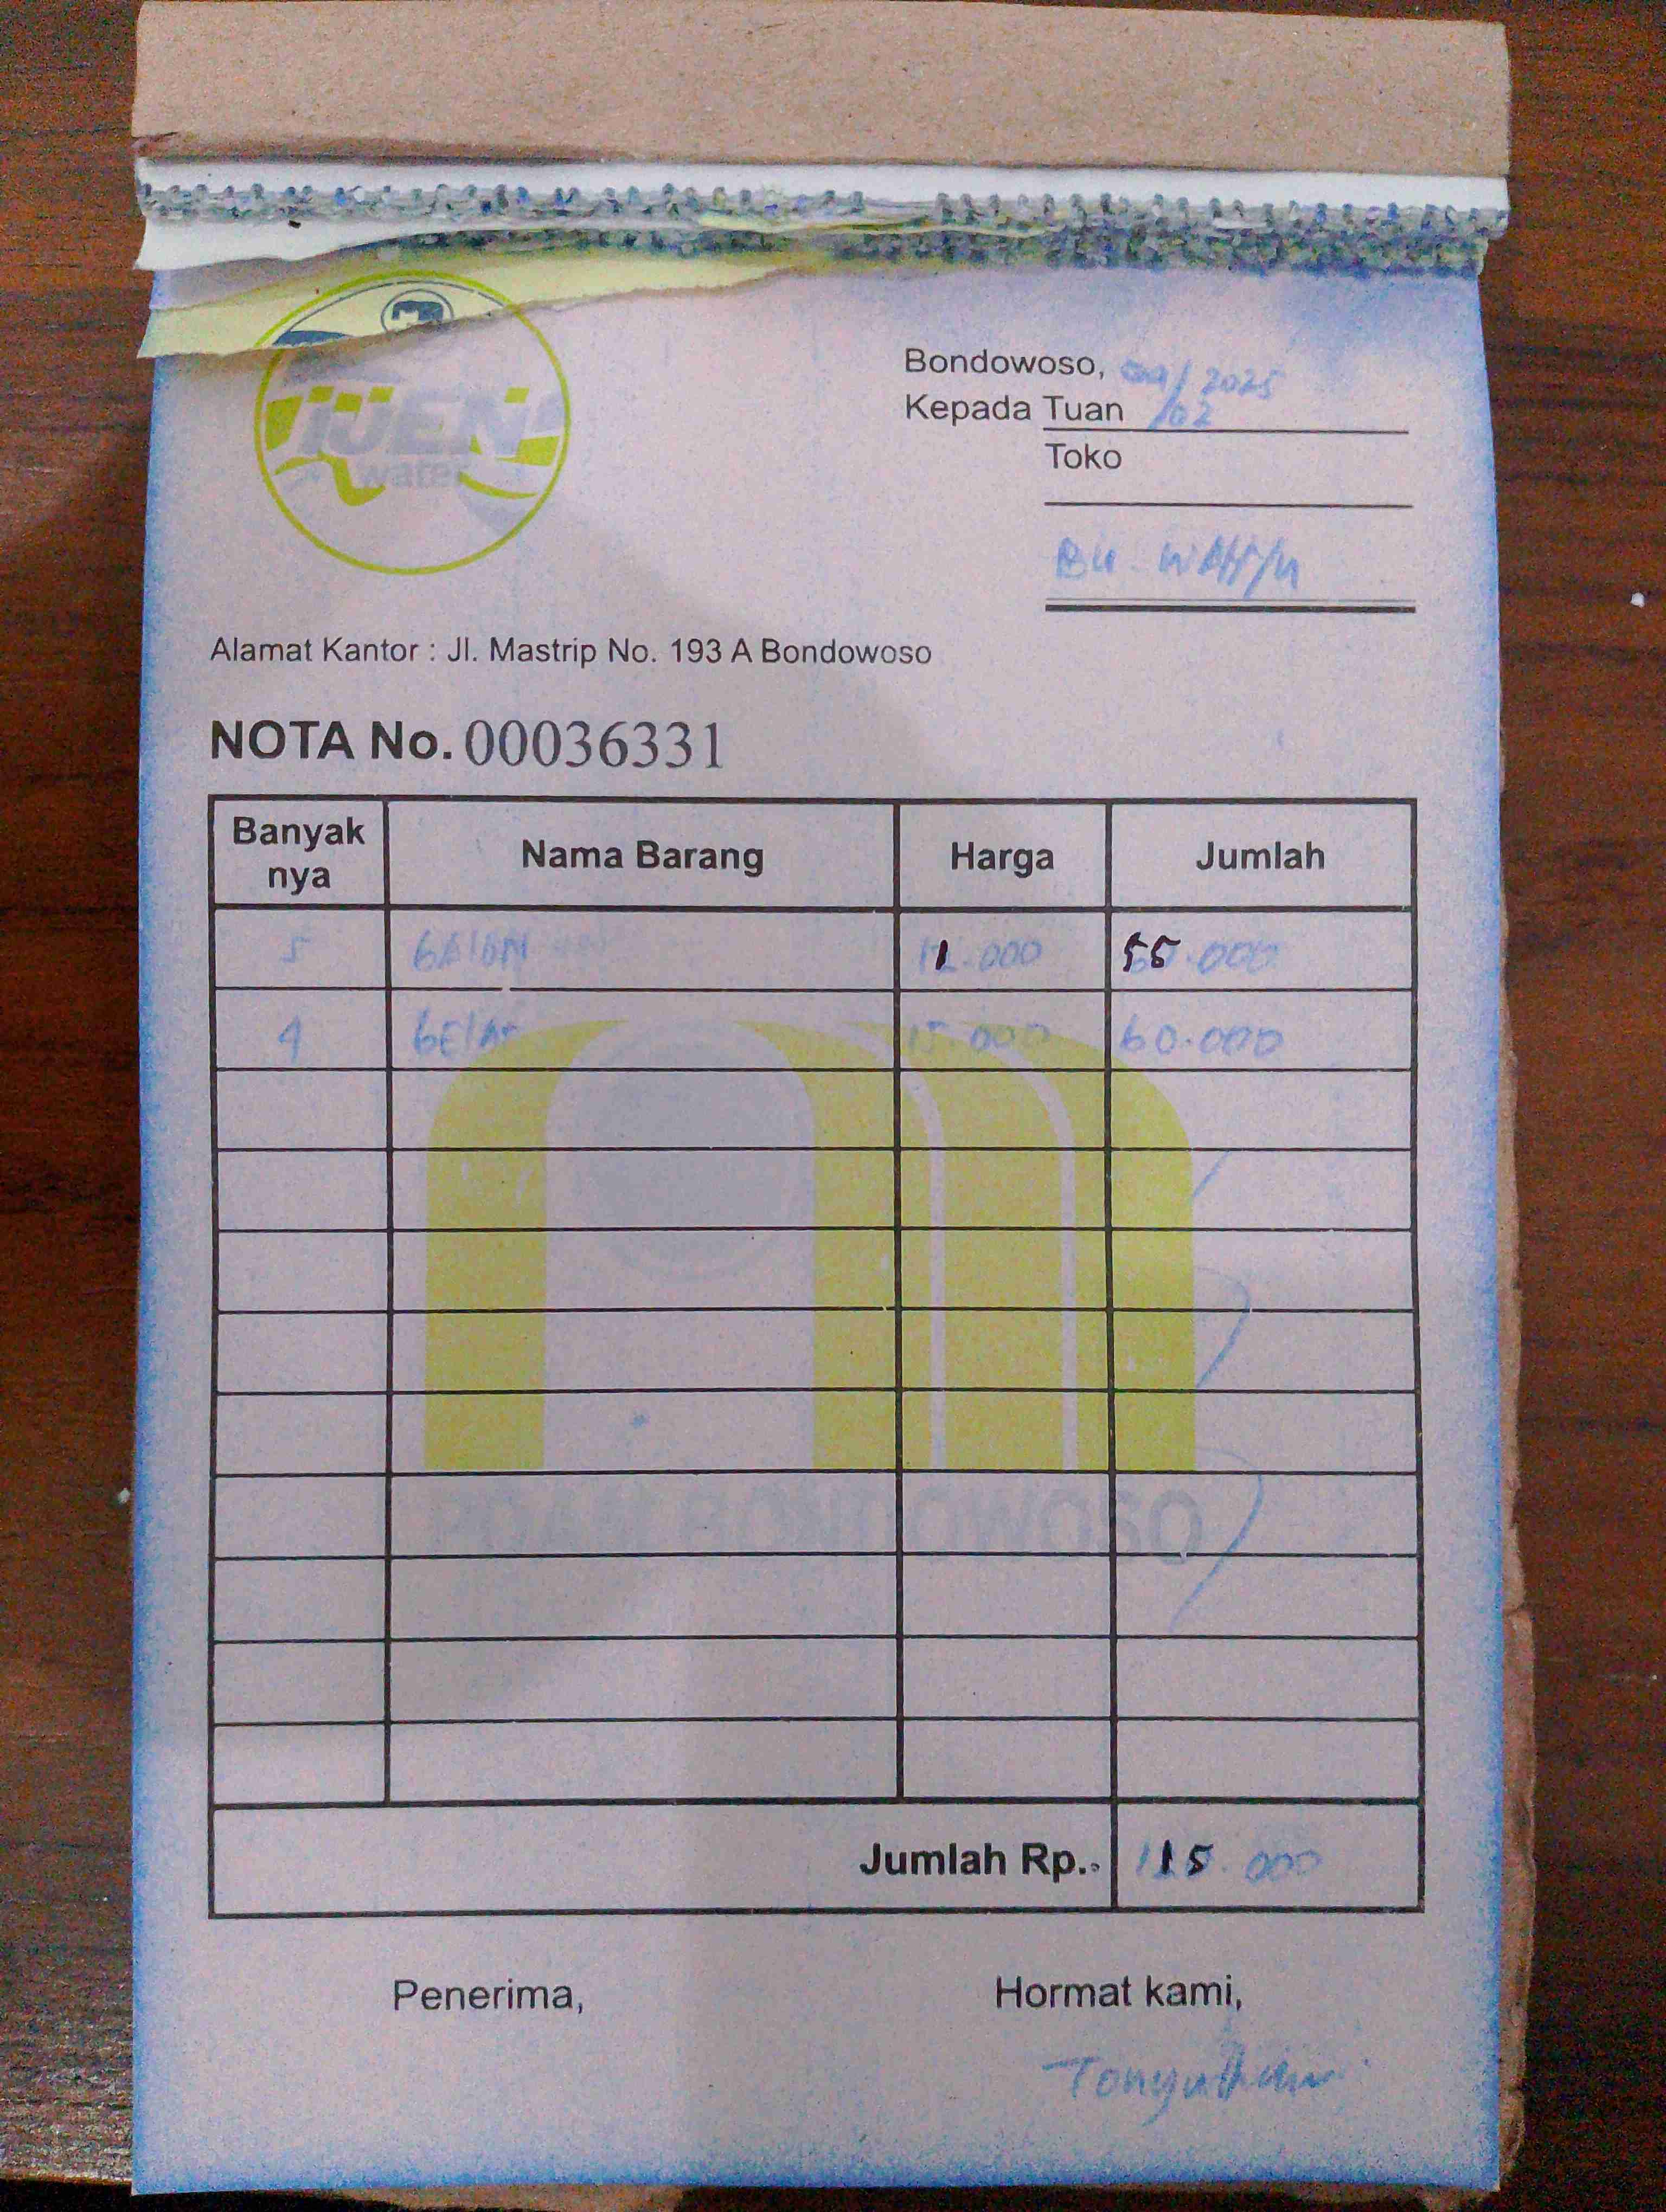 IJEN
water
Bondowoso, 04/02/2025
Kepada Tuan
Toko
Bu. WAHYU
Alamat Kantor : Jl. Mastrip No. 193 A Bondowoso
NOTA No. 00036331
Banyak nya Nama Barang Harga Jumlah
5 GALON 11.000 55.000
4 GELAS 15.000 60.000
PDAM BONDOWOSO
Jumlah Rp.. 115.000
Penerima, Hormat kami,